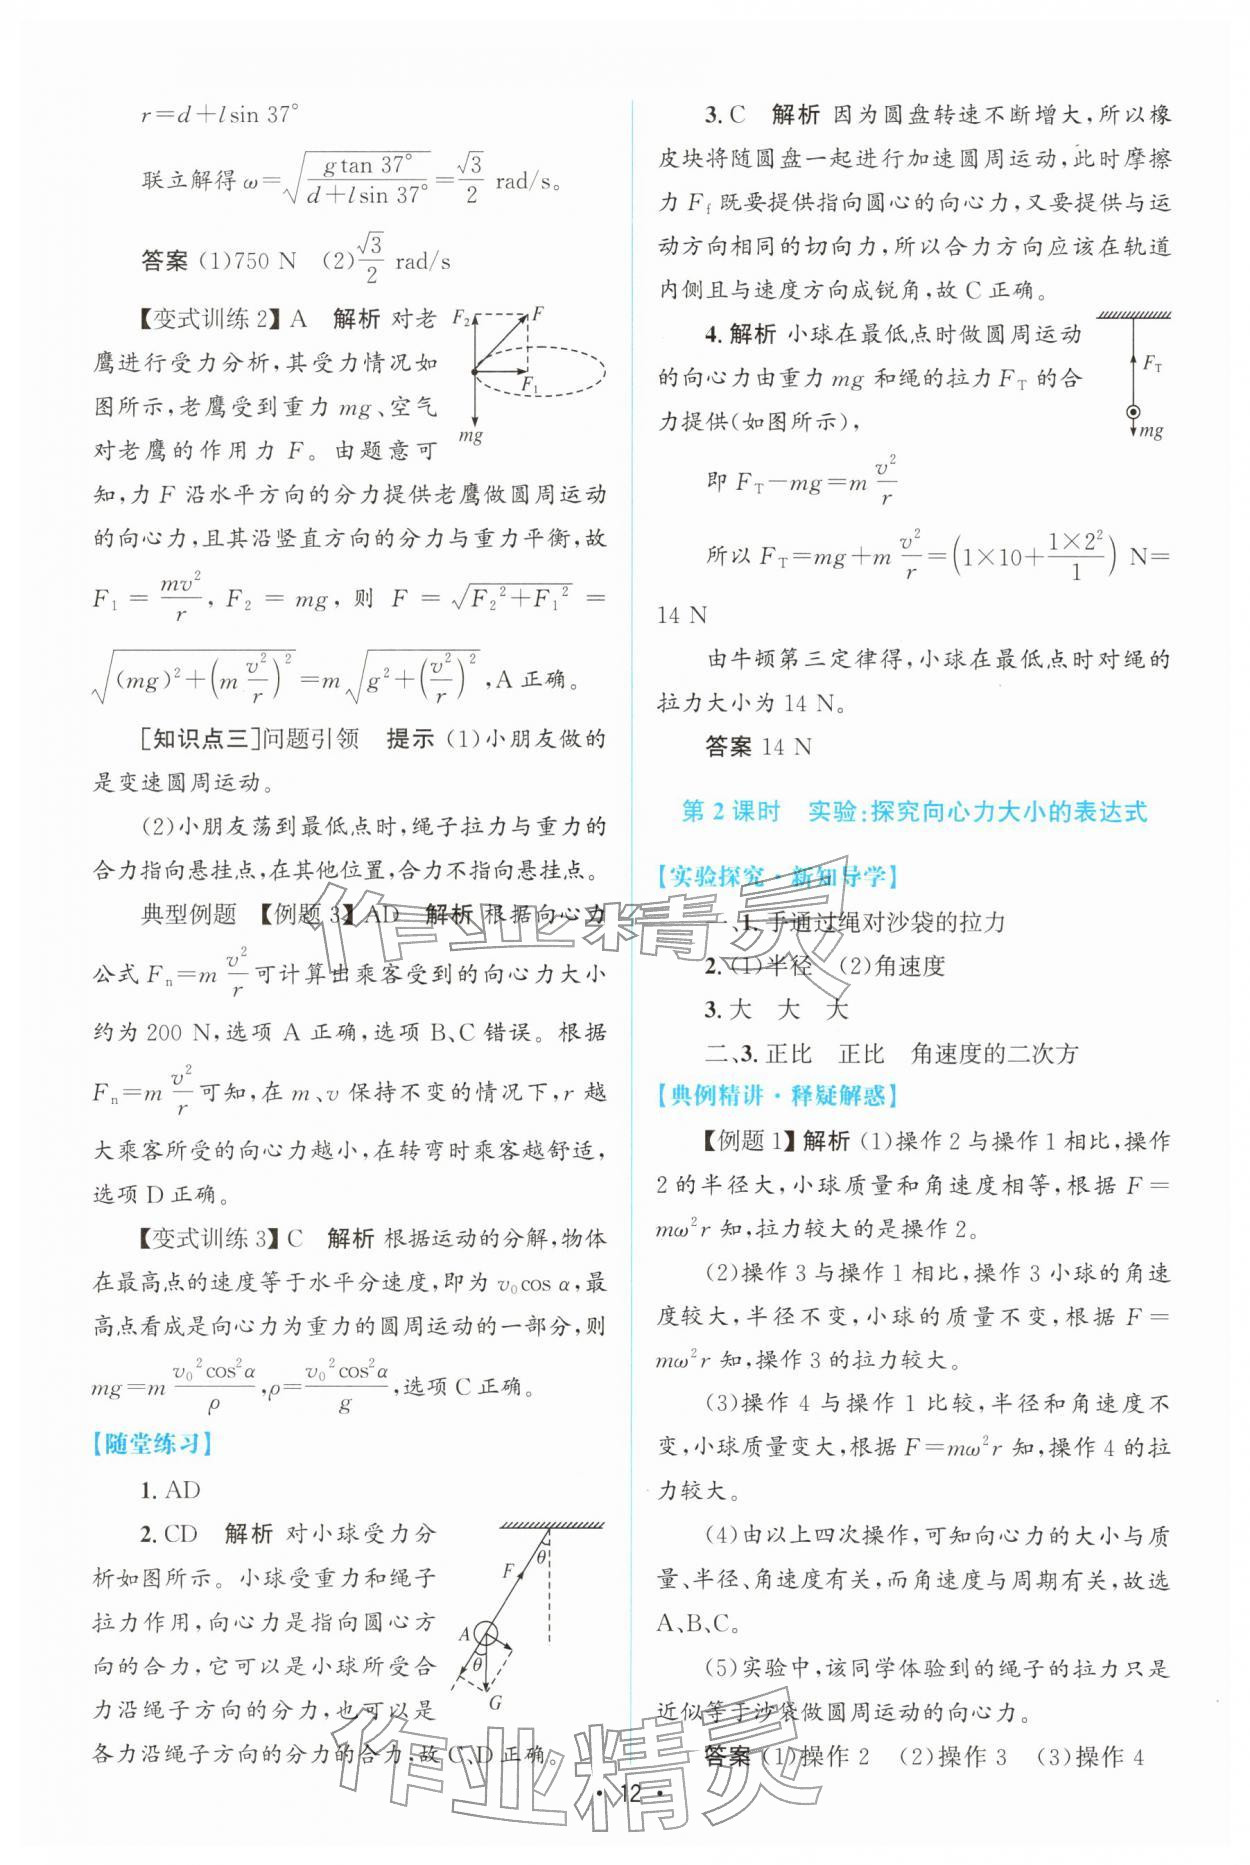 r=d+lsin 37°
联立解得 ω=√(gtan 37°/(d+lsin 37°))=√3/2 rad/s。
答案 (1)750 N (2)√3/2 rad/s
【变式训练2】A 解析 对老
鹰进行受力分析,其受力情况如
图所示,老鹰受到重力 mg、空气
对老鹰的作用力 F。由题意可
知,力 F 沿水平方向的分力提供老鹰做圆周运动
的向心力,且其沿竖直方向的分力与重力平衡,故
F₁=mv²/r,F₂=mg,则 F=√(F₂²+F₁²)=
√((mg)²+(m v²/r)²)=m√(g²+(v²/r)²),A正确。
F₂
F
F₁
mg
[知识点三]问题引领 提示 (1)小朋友做的
是变速圆周运动。
(2)小朋友荡到最低点时,绳子拉力与重力的
合力指向悬挂点,在其他位置,合力不指向悬挂点。
典型例题 【例题3】AD 解析 根据向心力
公式 Fₙ=m v²/r 可计算出乘客受到的向心力大小
约为 200 N,选项 A 正确,选项 B、C 错误。根据
Fₙ=m v²/r 可知,在 m、v 保持不变的情况下,r 越
大乘客所受的向心力越小,在转弯时乘客越舒适,
选项 D 正确。
【变式训练3】C 解析 根据运动的分解,物体
在最高点的速度等于水平分速度,即为 v₀cos α,最
高点看成是向心力为重力的圆周运动的一部分,则
mg=m v₀²cos²α/ρ,ρ=v₀²cos²α/g,选项 C 正确。
【随堂练习】
1. AD
2. CD 解析 对小球受力分
析如图所示。小球受重力和绳子
拉力作用,向心力是指向圆心方
向的合力,它可以是小球所受合
力沿绳子方向的分力,也可以是
各力沿绳子方向的分力的合力,故 C、D 正确。
θ
F
A
θ
G
3. C 解析 因为圆盘转速不断增大,所以橡
皮块将随圆盘一起进行加速圆周运动,此时摩擦
力 F_f 既要提供指向圆心的向心力,又要提供与运
动方向相同的切向力,所以合力方向应该在轨道
内侧且与速度方向成锐角,故 C 正确。
4. 解析 小球在最低点时做圆周运动
的向心力由重力 mg 和绳的拉力 F_T 的合
力提供(如图所示),
F_T
mg
即 F_T-mg=m v²/r
所以 F_T=mg+m v²/r=(1×10+1×2²/1) N=
14 N
由牛顿第三定律得,小球在最低点时对绳的
拉力大小为 14 N。
答案 14 N
第 2 课时 实验:探究向心力大小的表达式
【实验探究·新知导学】
一、1. 手通过绳对沙袋的拉力
2. (1)半径 (2)角速度
3. 大 大 大
二、3. 正比 正比 角速度的二次方
【典例精讲·释疑解惑】
【例题1】解析 (1)操作 2 与操作 1 相比,操作
2 的半径大,小球质量和角速度相等,根据 F=
mω²r 知,拉力较大的是操作 2。
(2)操作 3 与操作 1 相比,操作 3 小球的角速
度较大,半径不变,小球的质量不变,根据 F=
mω²r 知,操作 3 的拉力较大。
(3)操作 4 与操作 1 比较,半径和角速度不
变,小球质量变大,根据 F=mω²r 知,操作 4 的拉
力较大。
(4)由以上四次操作,可知向心力的大小与质
量、半径、角速度有关,而角速度与周期有关,故选
A、B、C。
(5)实验中,该同学体验到的绳子的拉力只是
近似等于沙袋做圆周运动的向心力。
答案 (1)操作 2 (2)操作 3 (3)操作 4
· 12 ·
作业精灵
作业精灵